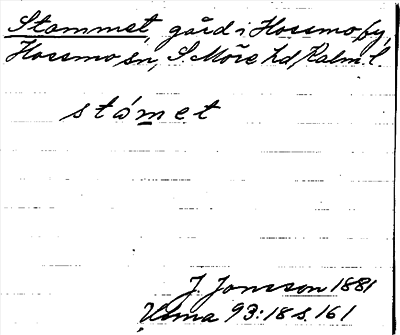 Stommet, gård i Hossmo by,
Hossmo sn, S. Möre hd, Kalm. l.
stómet
J. Jonsson 1881
93:18 s. 161